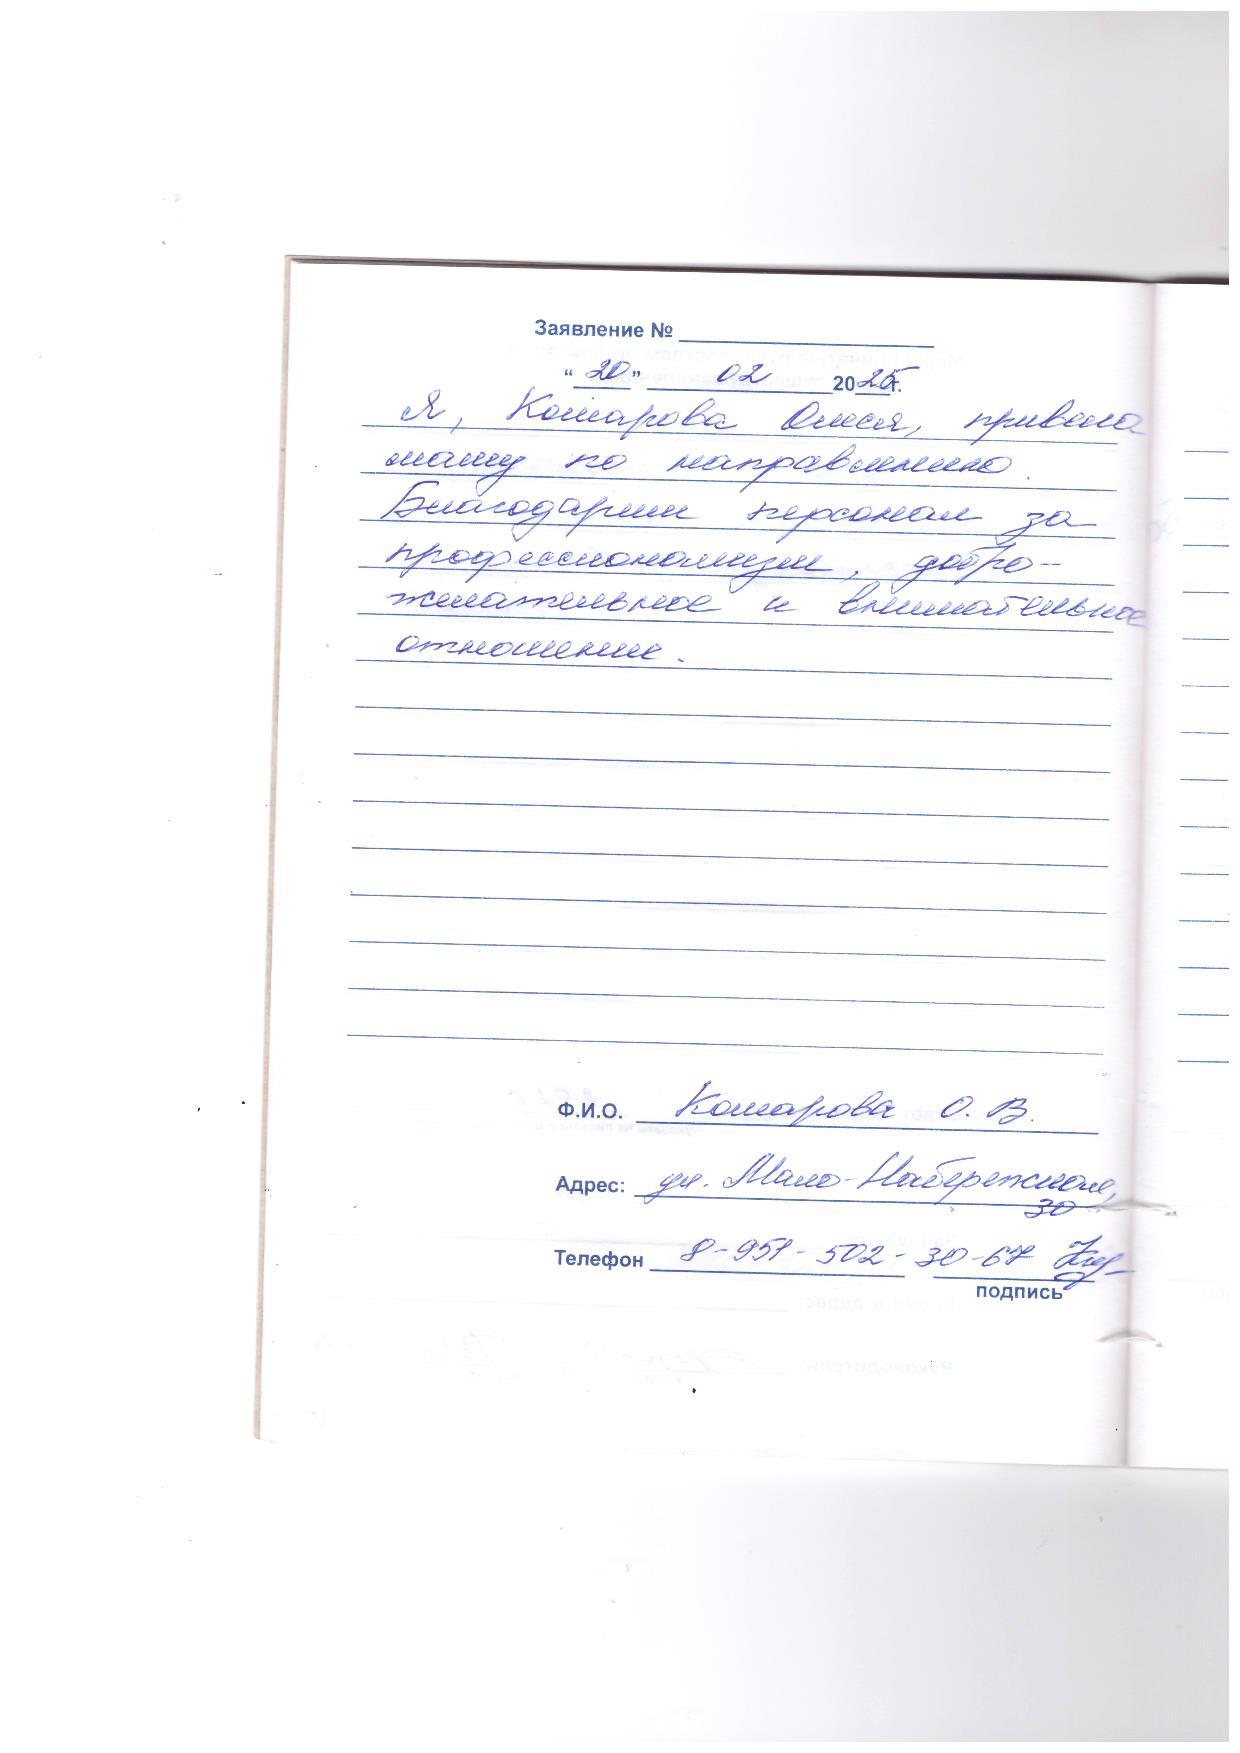 Заявление №
“ 20 ” 02 2025г.
Я, Комарова Олеся, привела
маму по направлению.
Благодарим персонал за
профессионализм, добро-
желательное и внимательное
отношение.
Ф.И.О. Комарова О. В.
Адрес: ул. Мало-Набережная,
30
Телефон 8-951-502-30-67
подпись